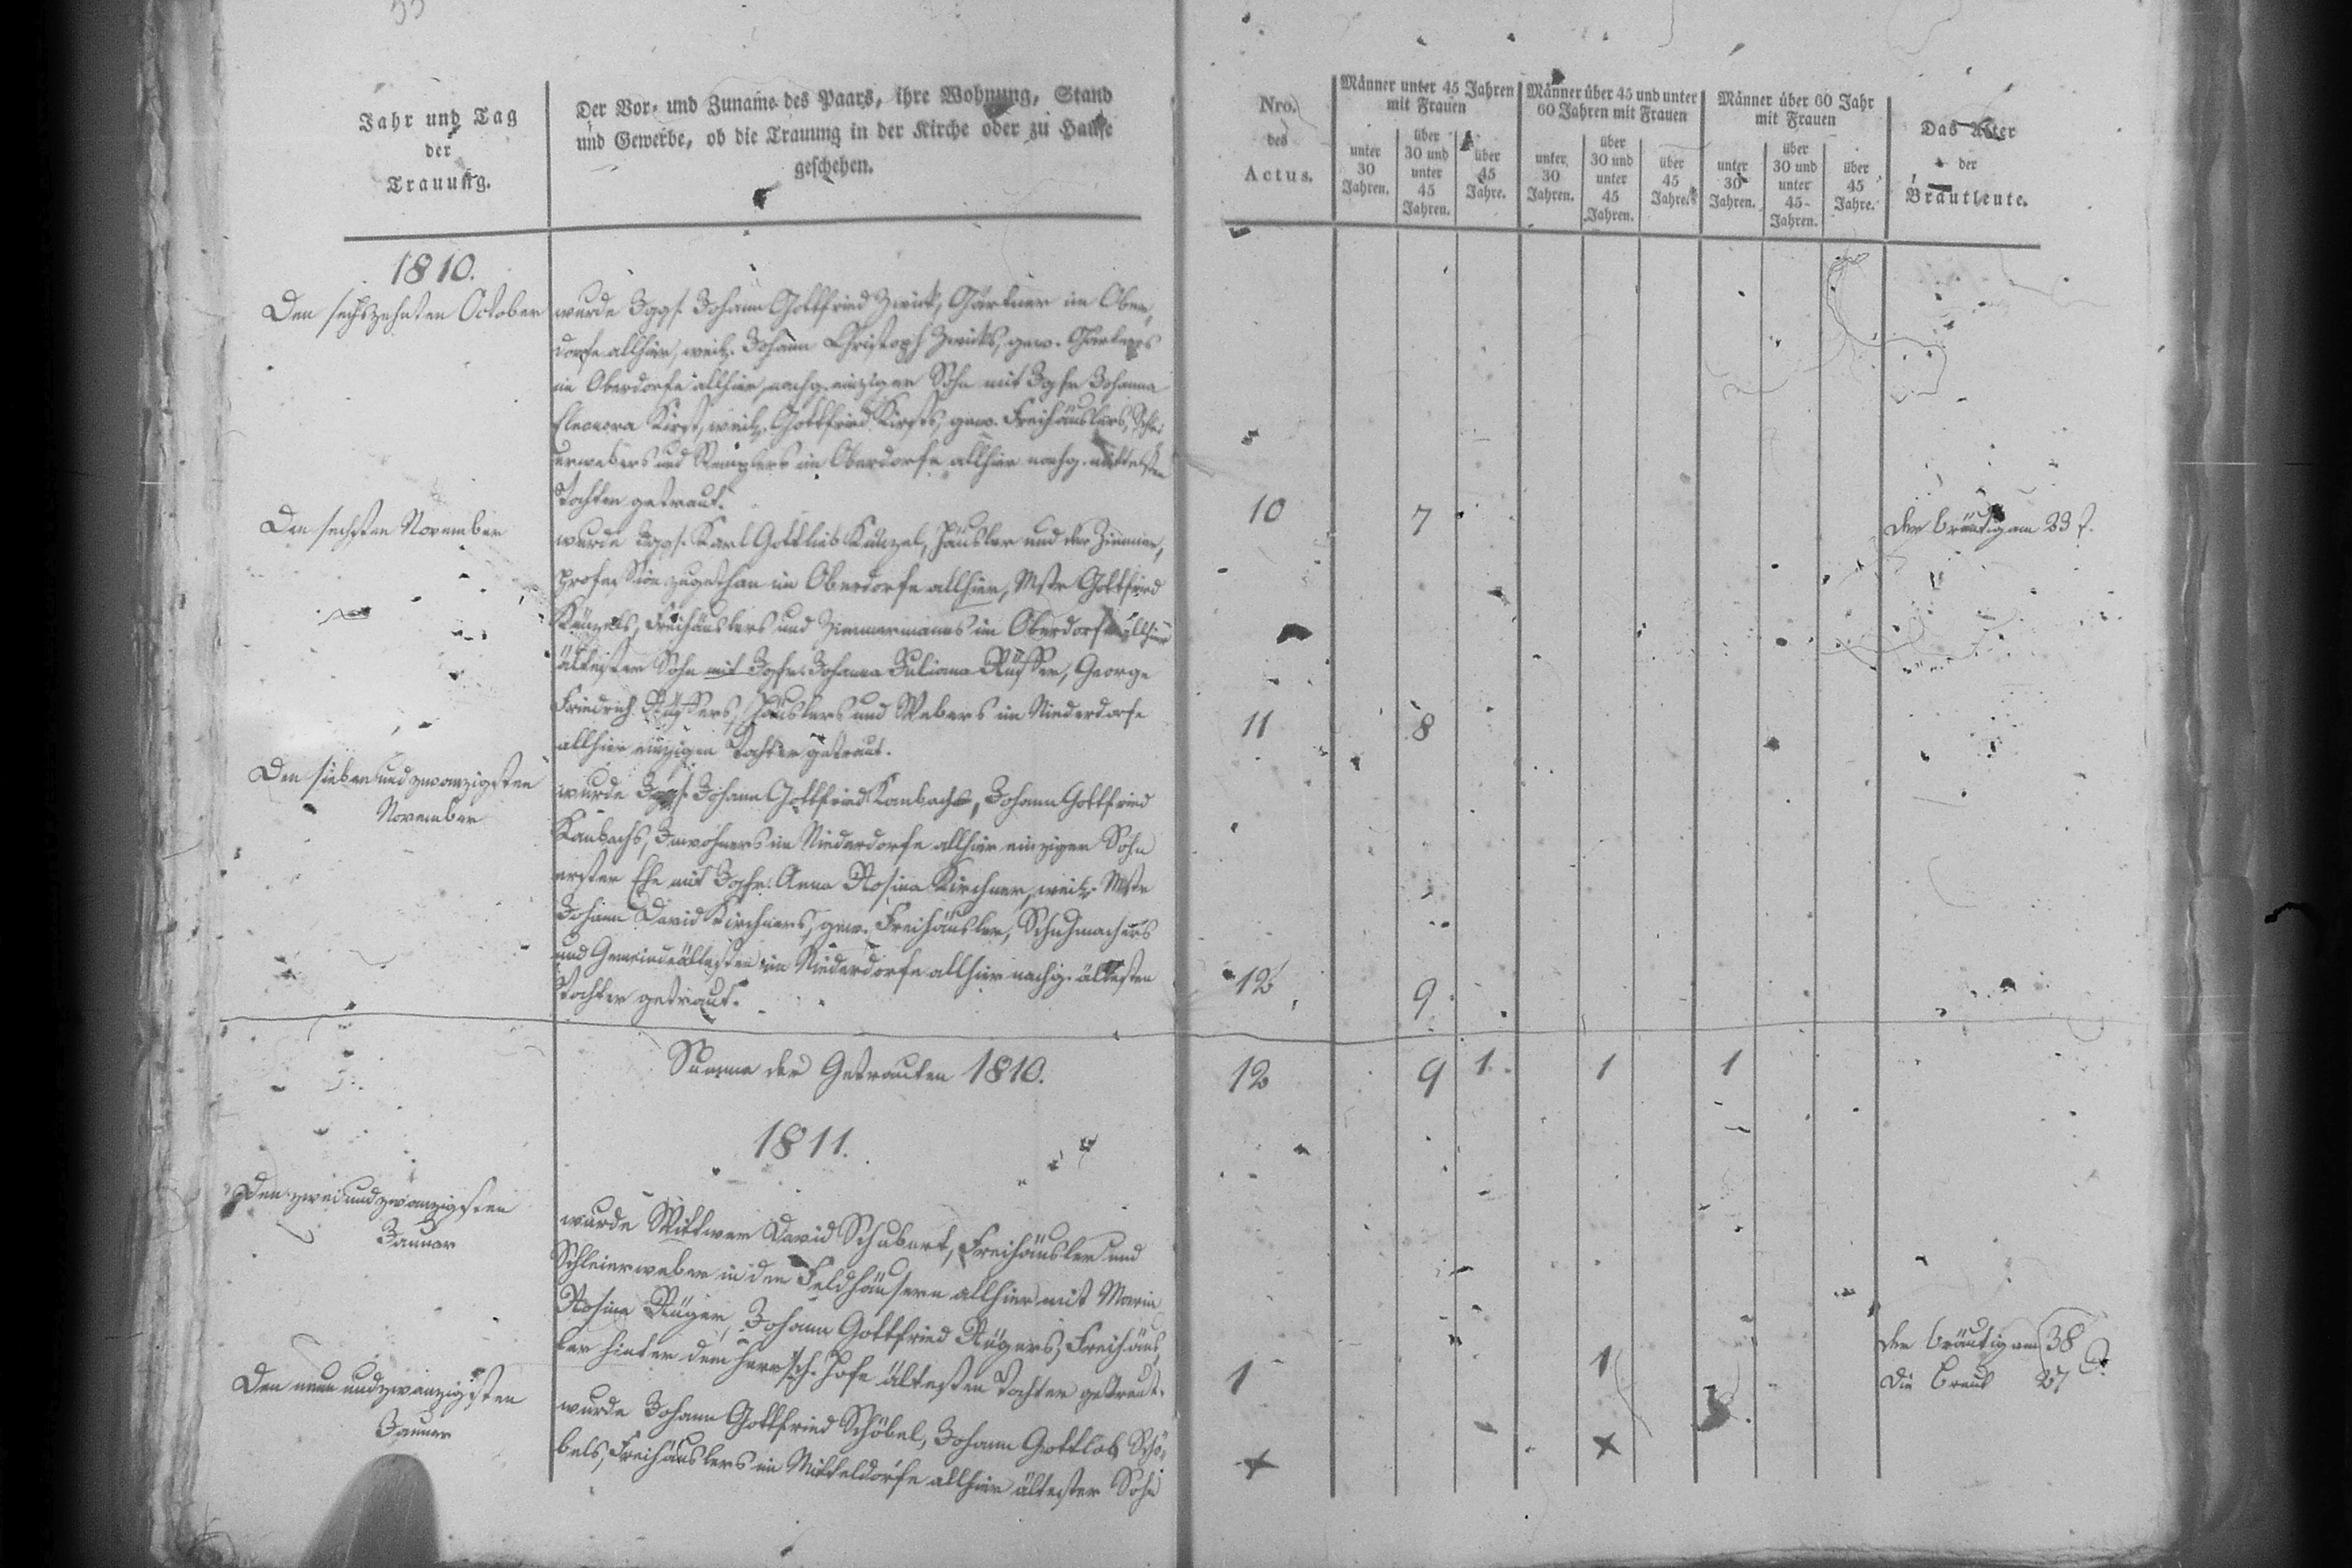 Jahr und Tag
der
Trauung.
Der Vor- und Zuname des Paars, ihre Wohnung, Stand
und Gewerbe, ob die Trauung in der Kirche oder zu Hause
geschehen.
1810.
Den sechszehnten October
wurde Jggs. Johann Gottfried Zwick, Gärtner im Ober,
dorfe allhier, weil. Johann Christoph Zwicks, gew. Gärtners
im Oberdorfe allhier, nachg. einziger Sohn mit Jgfr Johanna
Eleonora Kirst, weil. Gottfried Kirsts, gew. Freihäuslers, Schlei
erwebers und im Oberdorfe allhier nachg. mittelsten
Tochter getraut.
Den sechsten November
wurde Jggs. Karl Gottlieb Künzel, Häusler und der Zimmer,
profession zugethan im Oberdorfe allhier, Mstr Gottfried
Künzels, Freihäuslers und Zimmermanns im Oberdorfe allhier
ältester Sohn mit Jgfr. Johanna Juliana Rüffer, George
Friedrich Rüffers, Häuslers und Webers im Niederdorfe
allhier einzigen Tochter getraut.
Den sieben und zwanzigsten
November
wurde Jggs. Johann Gottfried Kanbach, Johann Gottfried
Kanbachs, Inwohners im Niederdorfe allhier einziger Sohn
erster Ehe mit Jgfr. Anna Rosina Kirchner, weil. Mstr
Johann David Kirchners, gew. Freihäusler, Schuhmachers
und Gemeindeältesten im Niederdorfe allhier nachg. ältesten
Tochter getraut.
Summe der Getrauten 1810.
1811.
Den zwei und zwanzigsten
Januar
wurde Wittwer David Schubert, Freihäusler und
Schleierweber in den Feldhäusern allhier mit Maria
Rosina Rüger, Johann Gottfried Rügers, Freihäus,
ler hinter dem herrsch. Hofe ältesten Tochter getraut.
Den neun und zwanzigsten
Januar
wurde Johann Gottfried Schöbel, Johann Gottlob Schö,
bels, Freihäuslers im Mitteldorfe allhier ältester Sohn
Nro.
des
Actus.
Männer unter 45 Jahren
mit Frauen
unter
30
Jahren.
über
30 und
unter
45
Jahren.
über
45
Jahre.
Männer über 45 und unter
60 Jahren mit Frauen
unter
30
Jahren.
über
30 und
unter
45
Jahren.
über
45
Jahre.
Männer über 60 Jahr
mit Frauen
unter
30
Jahren.
über
30 und
unter
45
Jahren.
über
45
Jahre.
Das Alter
der
Brautleute.
10 7 Der Bräutigam 23 J.
11 8
12 9
12 9 1 1 1
1 1 Der Bräutigam 38
Die Braut 27 J.
+ +